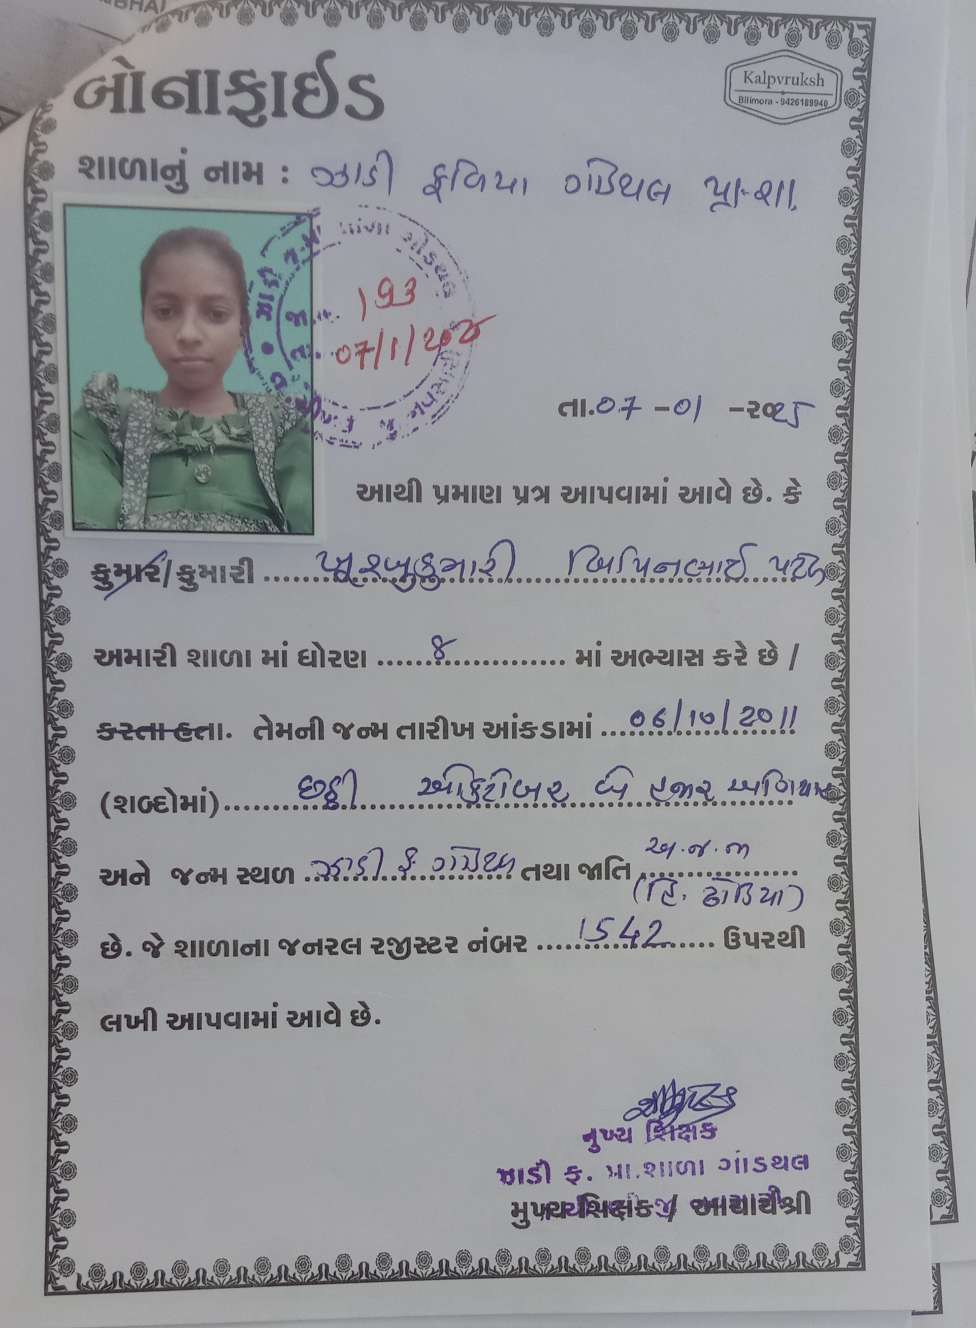 BHAI
બોનાફાઈડ
Kalpvruksh
Bilimora - 9426189940
શાળાનું નામ : ઝાડી ફળિયા ગોડથલ પ્રા-શા.
193
07/1/2025
તા.07 -01 -૨૦25
આથી પ્રમાણ પ્રત્ર આપવામાં આવે છે. કે
કુમાર/કુમારી ખુશ્બુકુમારી બિપિનભાઈ પટેલ
અમારી શાળા માં ધોરણ ૪ માં અભ્યાસ કરે છે /
કરતા હતા. તેમની જન્મ તારીખ આંકડામાં 06/10/2011
(શબ્દોમાં) છઠ્ઠી ઓક્ટોબર બે હજાર અગિયાર
અને જન્મ સ્થળ ઝાડી ફ ગોડથલ તથા જાતિ અ.જ.જા
(હિ. ઢોડિયા)
છે. જે શાળાના જનરલ રજીસ્ટર નંબર 1542 ઉપરથી
લખી આપવામાં આવે છે.
મુખ્ય શિક્ષક
ઝાડી ફ. પ્રા.શાળા ગોડથલ
મુખ્ય શિક્ષક / આચાર્યશ્રી